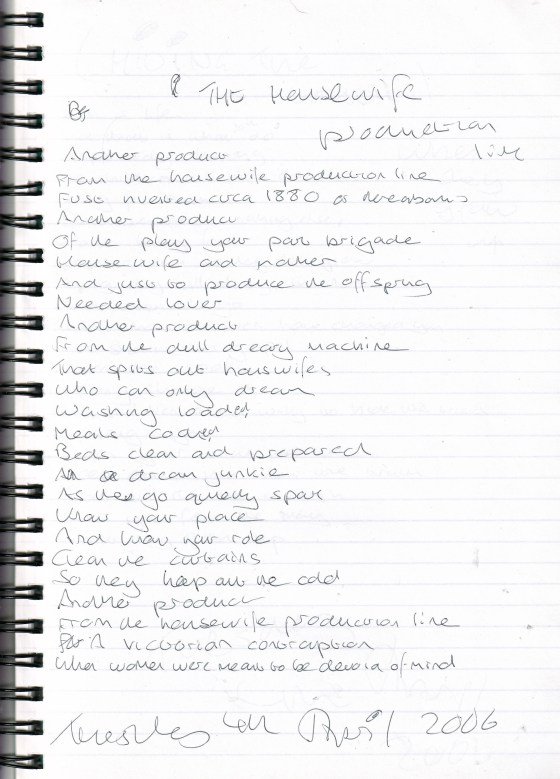 THE Housewife
production
line
Another product
From the housewife production line
First invented circa 1880 or thereabouts
Another product
Of the play your part brigade
Housewife and mother
And just to produce the offspring
Needed lover
Another product
From the dull dreary machine
That spits out housewifes
Who can only dream
Washing loaded
Meals cooked
Beds clean and prepared
A dream junkie
As they go quietly spare
Know your place
And know your role
Clean the curtains
So they keep out the cold
Another product
From the housewife production line
A Victorian contraption
When women were meant to be devoid of mind
Tuesday 4th April 2006